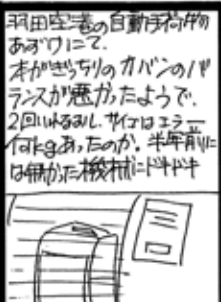 羽田空港の自動手荷物
あずけにて.
本がぎっちりのカバンのバ
ランスが悪かったようで.
2回いれなおし. サイズはエラー
何kgあったのか. 半年前に
は無かった機材にドキドキ